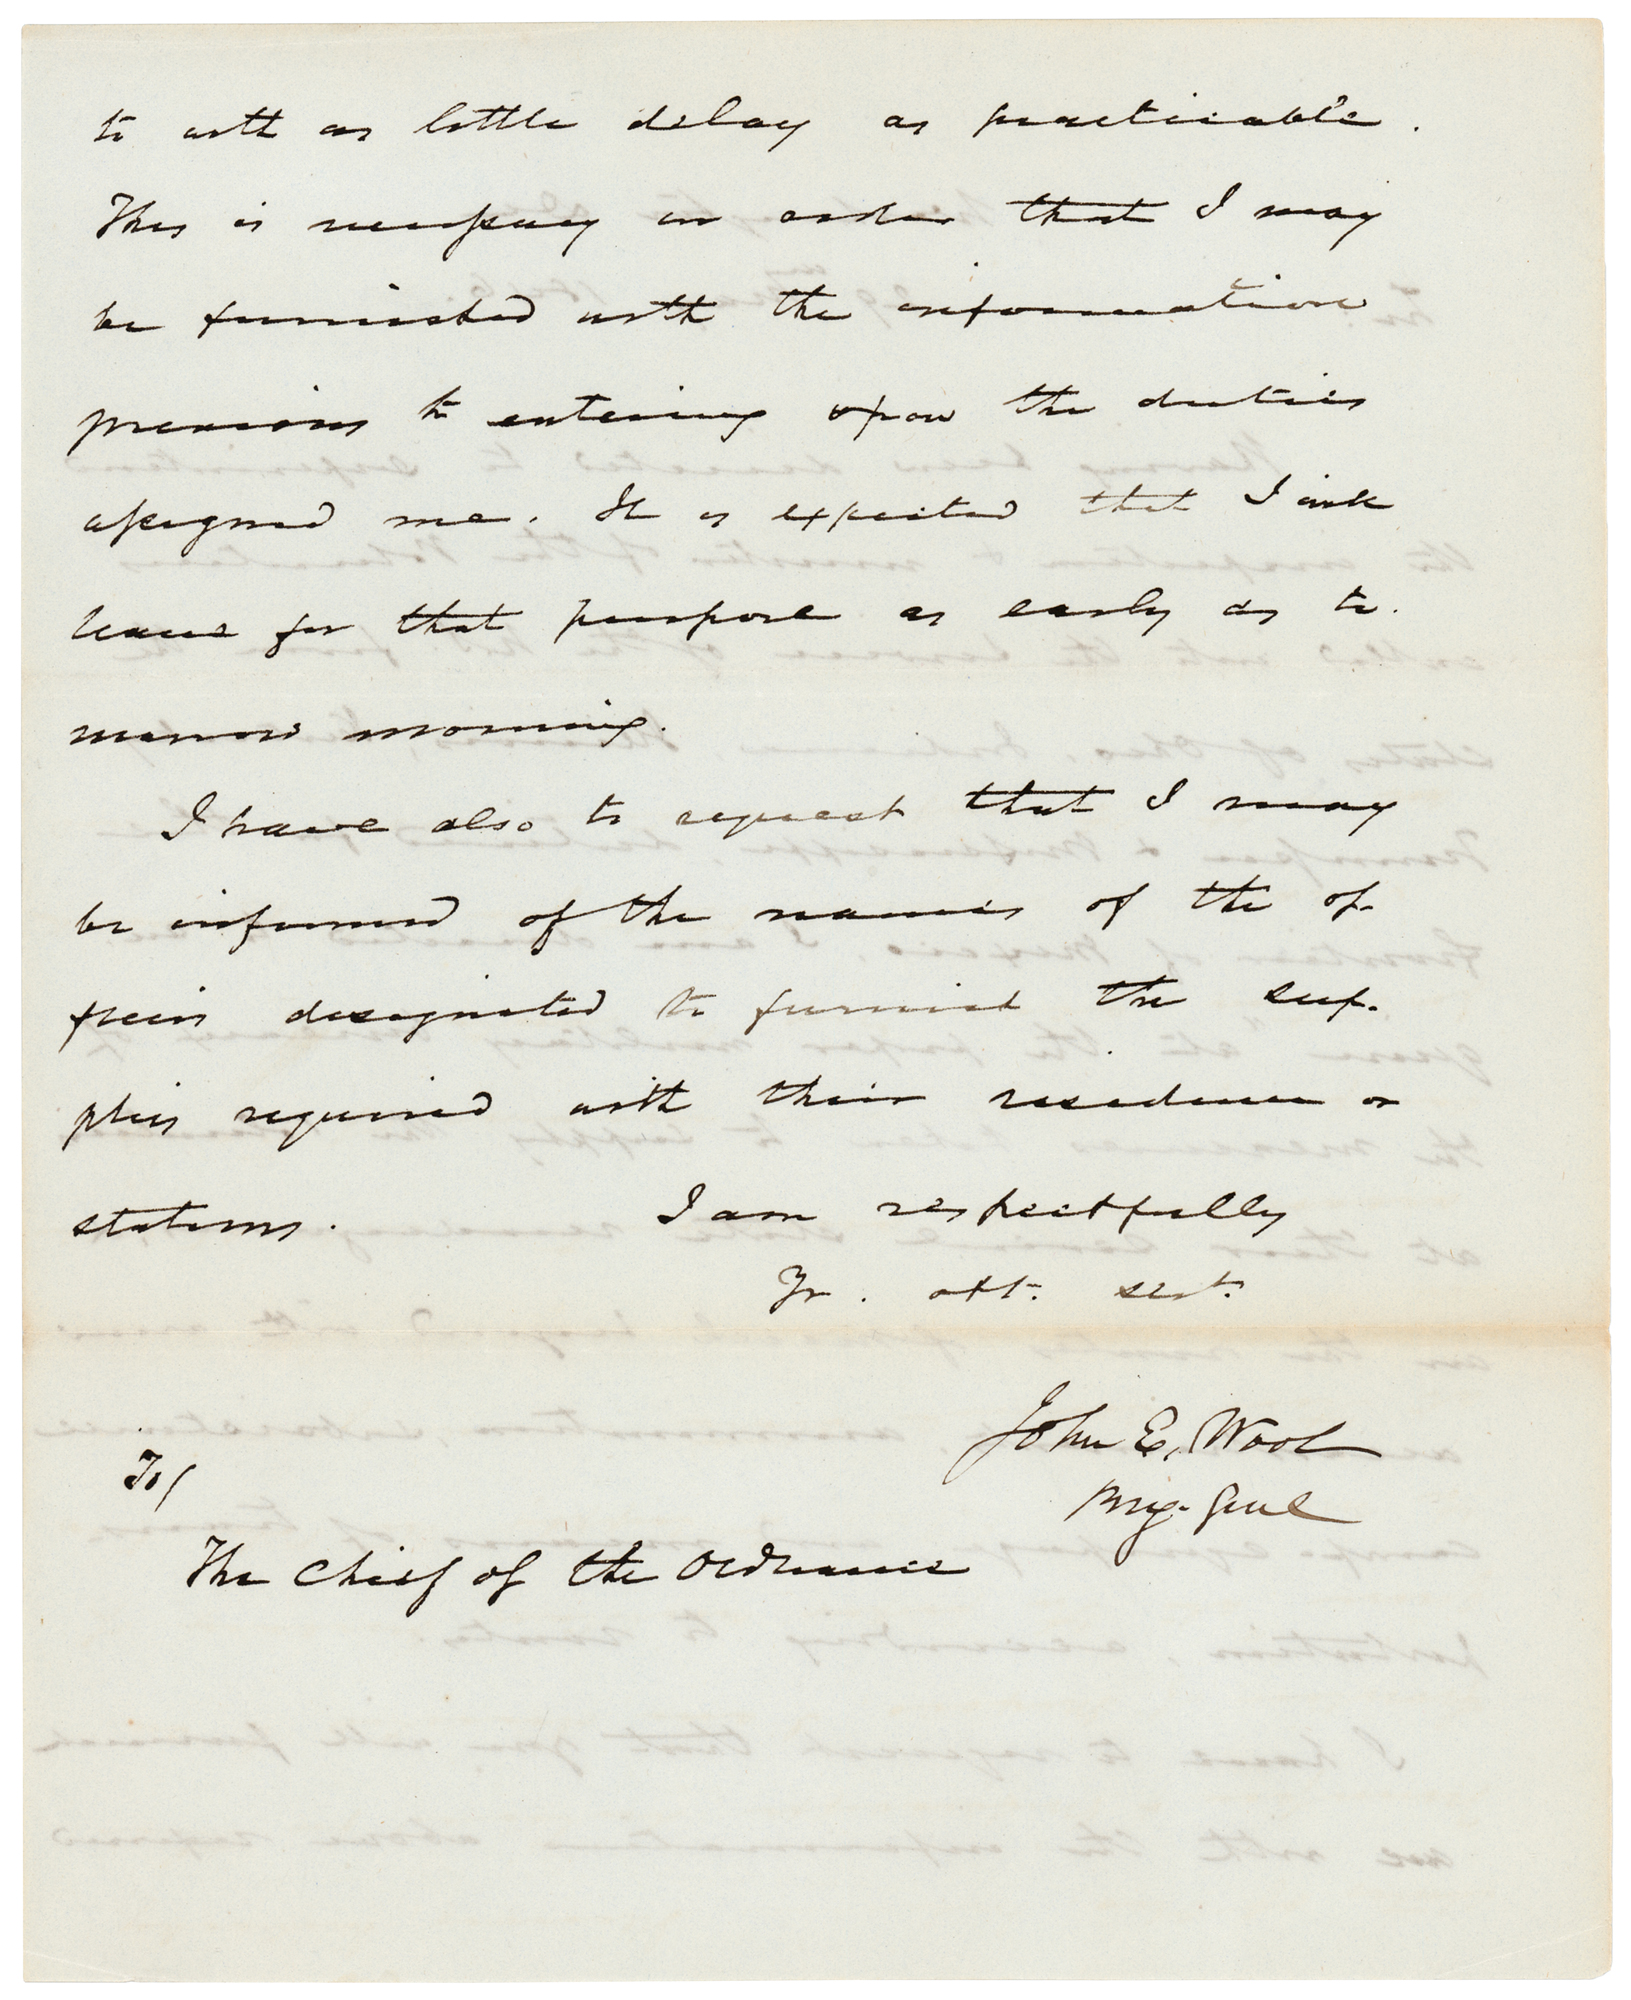 to with as little delay as practicable.
This is necessary in order that I may
be furnished with the information
previous to entering upon the duties
assigned me. It is expected that I will
leave for that purpose as early as to.
morrow morning.
I have also to request that I may
be informed of the names of the of-
ficers designated to furnish the sup-
plies required with their residence or
stations. I am respectfully
Yr. obt. servt.
John E. Wool
Brig. Genl
To/
The Chief of the Ordnance